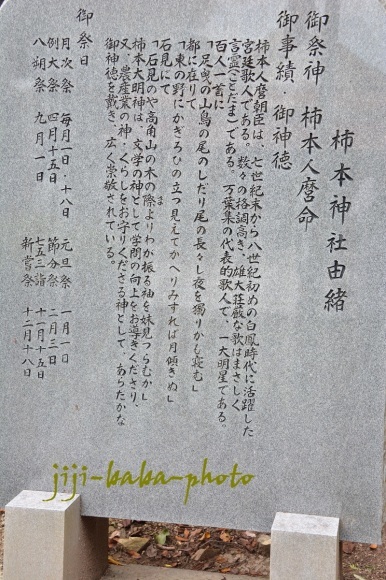 柿本神社由緒
御祭神　柿本人麿命
御事績・御神徳
柿本人麿朝臣は、七世紀末から八世紀初めの白鳳時代に活躍した
宮廷歌人である。数々の格調高き、雄大荘厳な歌はまさしく
言霊(ことだま)である。万葉集の代表的歌人で、一大明星である。
百人一首に
「足曳の山鳥の尾のしだり尾の長々し夜を獨りかも寝む」
都に在りて
「東の野にかぎろひの立つ見えてかへりみすれば月傾きぬ」
石見にて
「石見のや高角山の木の際よりわが振る袖を妹見つらむか」
柿本大明神は、文学の神として学問の向上をお導きくださり、
又、農産業の神・くらしをお守りくださる神として、あらたかな
御神徳を戴き、広く崇敬されている。
御祭日
月次祭　毎月一日・十八日　元旦祭　一月一日
例大祭　四月十五日　節分祭　二月三日
八朔祭　九月一日　七五三詣　十一月十五日
新嘗祭　十二月十八日
jiji-baba-photo